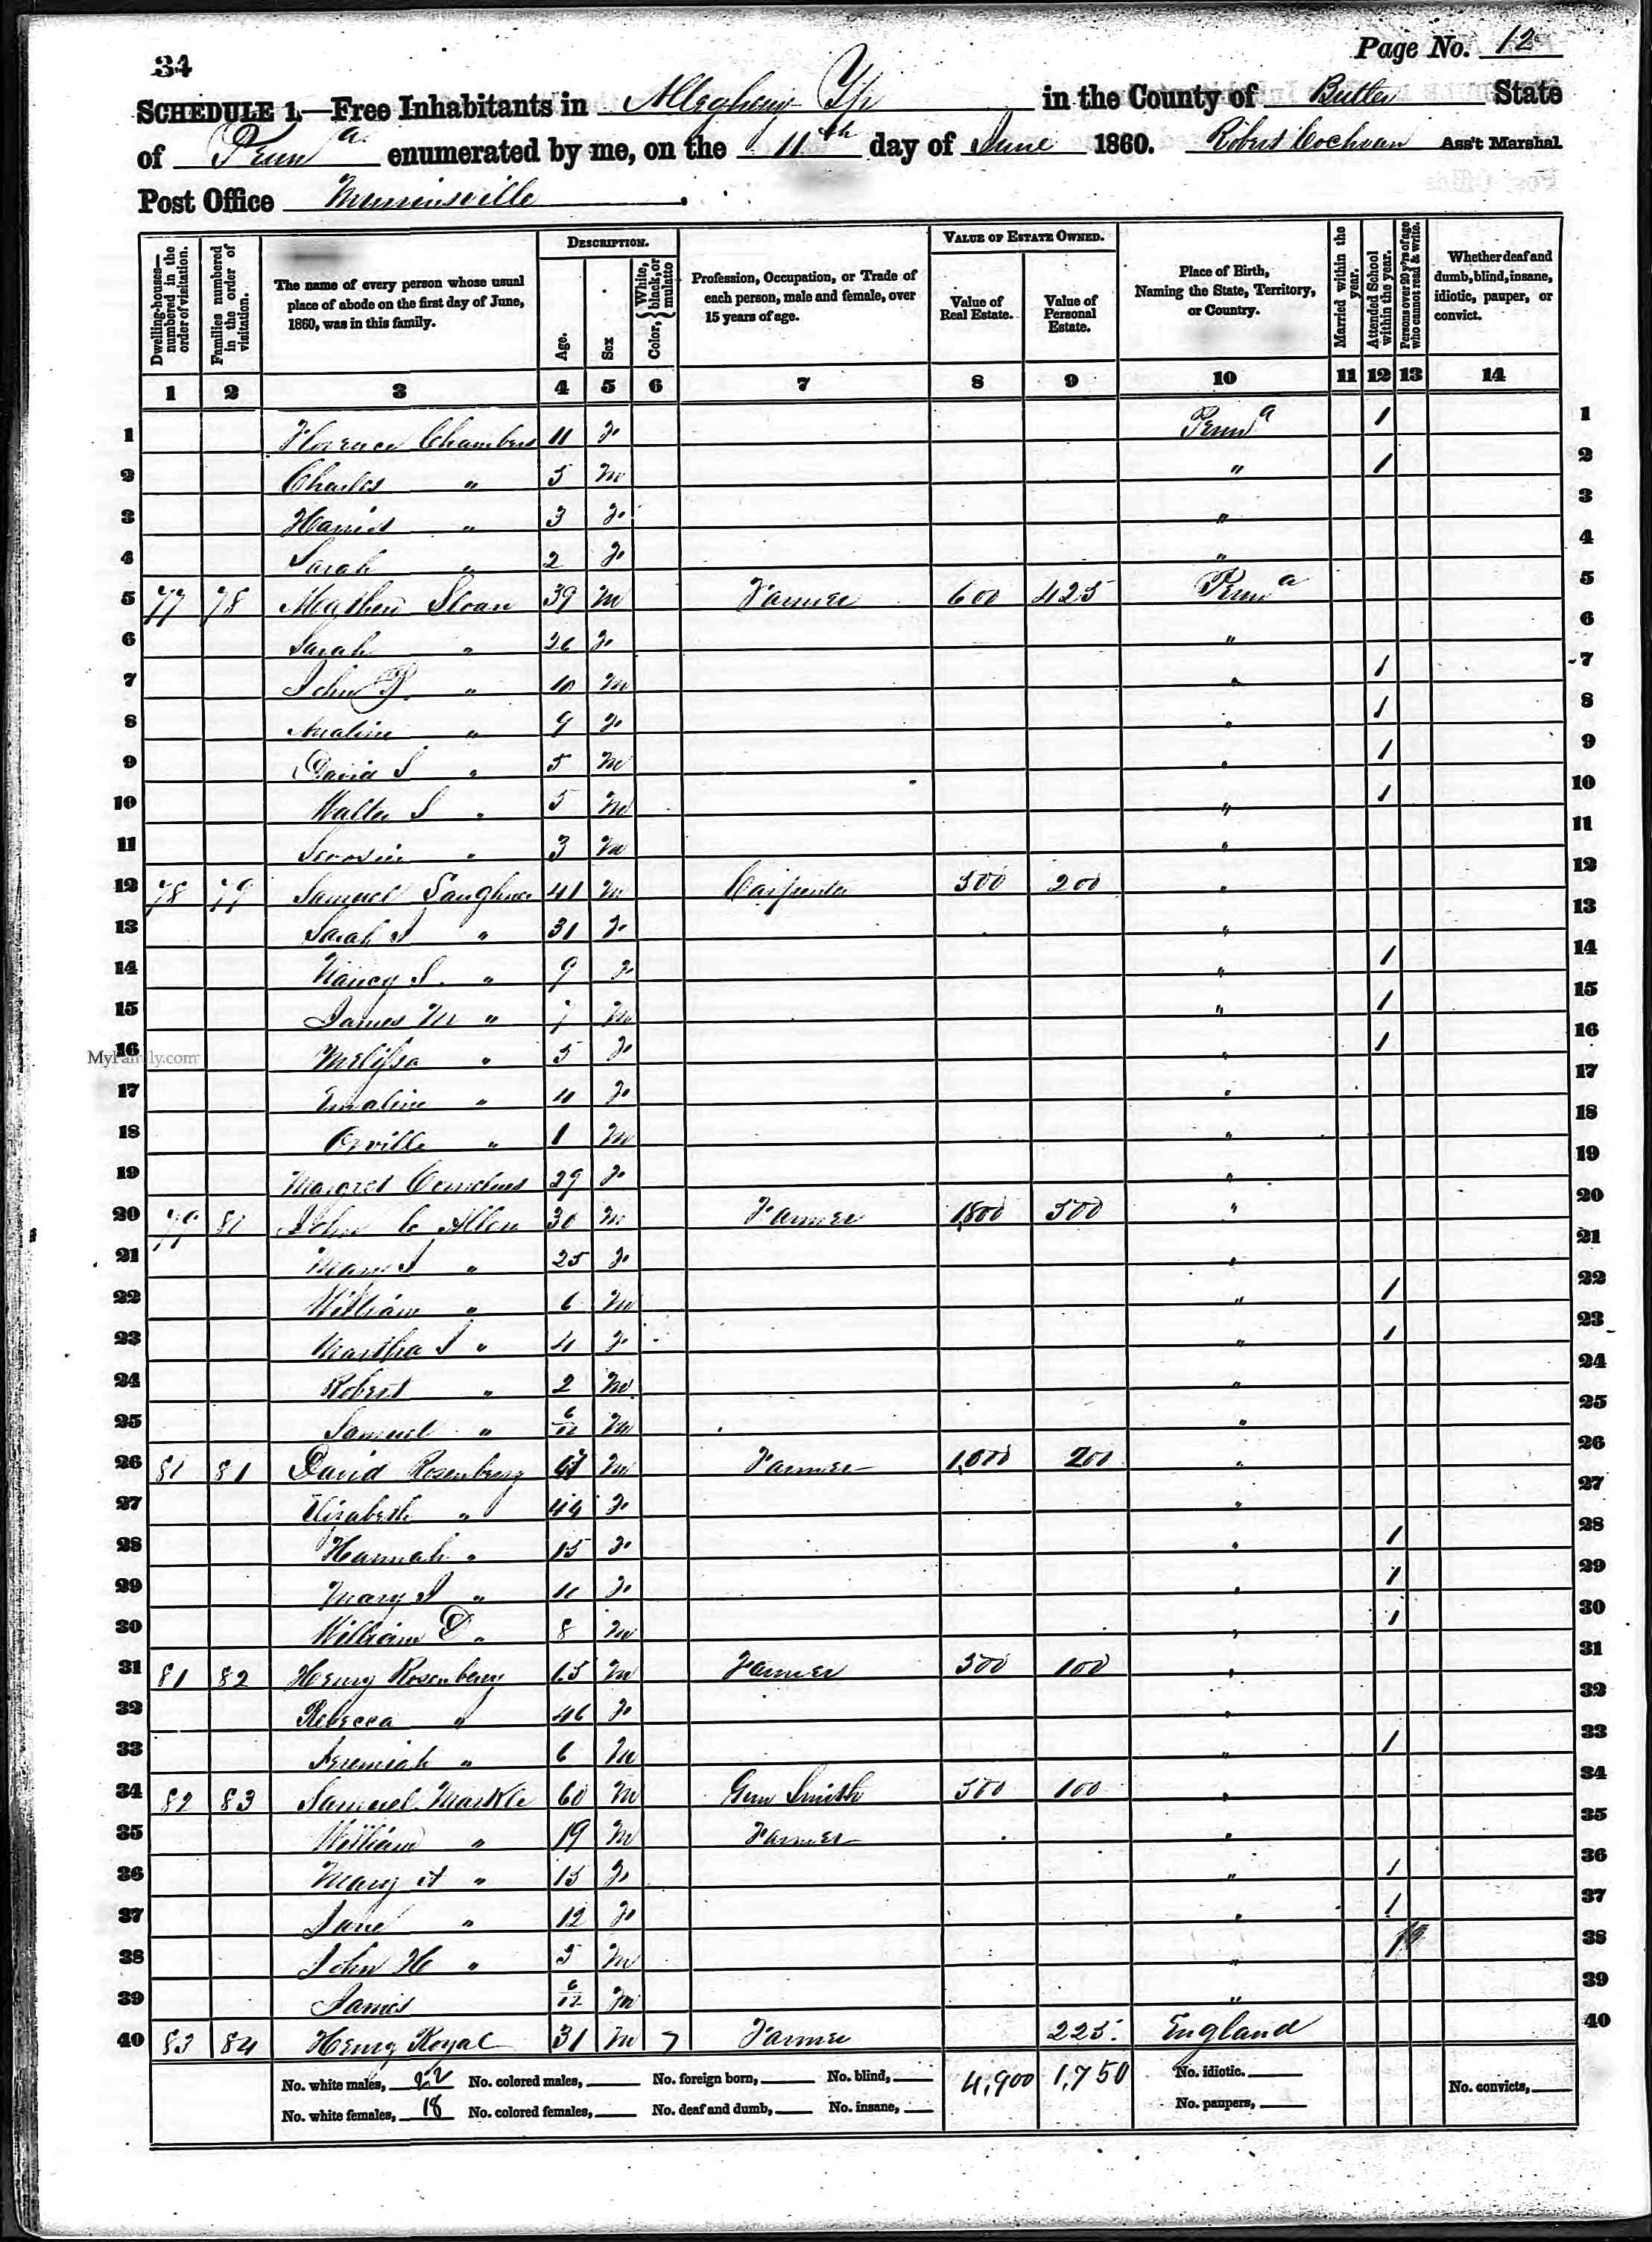 34
Page No. 12
SCHEDULE 1.—Free Inhabitants in Allegheny Tp in the County of Butler State
of Penna enumerated by me, on the 11th day of June 1860. Robert Cochran Ass't Marshal.
Post Office
Dwelling-houses—numbered in the order of visitation.
Families numbered in the order of visitation.
The name of every person whose usual place of abode on the first day of June, 1860, was in this family.
DESCRIPTION.
Age.
Sex
Color, { White, black, or mulatto
Profession, Occupation, or Trade of each person, male and female, over 15 years of age.
VALUE OF ESTATE OWNED.
Value of Real Estate.
Value of Personal Estate.
Place of Birth, Naming the State, Territory, or Country.
Married within the year.
Attended School within the year.
Persons over 20 y'rs of age who cannot read & write.
Whether deaf and dumb, blind, insane, idiotic, pauper, or convict.
1 2 3 4 5 6 7 8 9 10 11 12 13 14
1 Florence Chambers 11 f Penna 1 1
2 Charles " 5 m " 1 2
3 Harriet " 3 f " 3
4 Sarah " 2 f " 4
5 77 78 Mathew Sloan 39 m Farmer 600 425 Penna 5
6 Sarah " 26 f " 6
7 John P. " 10 m " 1 7
8 " 9 f " 1 8
9 David S " 5 m " 1 9
10 Walter S " 5 m " 1 10
11 " 3 m " 11
12 78 79 Samuel 41 m Carpenter 500 200 " 12
13 Sarah J " 31 f " 13
14 Nancy J. " 9 f " 1 14
15 James M " 7 m " 1 15
16 Melissa " 5 f " 1 16
17 Emaline " 4 f " 17
18 Orville " 1 m " 18
19 Margret Cornelius 29 f " 19
20 79 80 John C Allen 30 m Farmer 1,800 500 " 20
21 Mary J " 25 f " 21
22 William " 6 m " 1 22
23 Martha J " 4 f " 1 23
24 Robert " 2 m " 24
25 Samuel " 6/12 m " 25
26 81 81 David Rosenberry m Farmer 1,000 200 " 26
27 Elizabeth " 49 f " 27
28 Hannah " 15 f " 1 28
29 Mary J " 11 f " 1 29
30 William D " 8 m " 1 30
31 81 82 Henry Rosenberry 65 m Farmer 500 100 " 31
32 Rebecca " 46 f " 32
33 Jeremiah " 6 m " 1 33
34 82 83 Samuel Markle 60 m Gun Smith 500 100 " 34
35 William " 19 m Farmer " 35
36 Mary A " 15 f " 1 36
37 Jane " 12 f " 1 37
38 John H " 5 m " 1 38
39 James 6/12 m " 39
40 83 84 Henry Royal 31 m 7 Farmer 225 England 40
No. white males, 22 No. colored males, No. foreign born, No. blind, 4,900 1,750 No. idiotic. No. convicts,
No. white females, 18 No. colored females, No. deaf and dumb, No. insane, No. paupers,
MyFamily.com